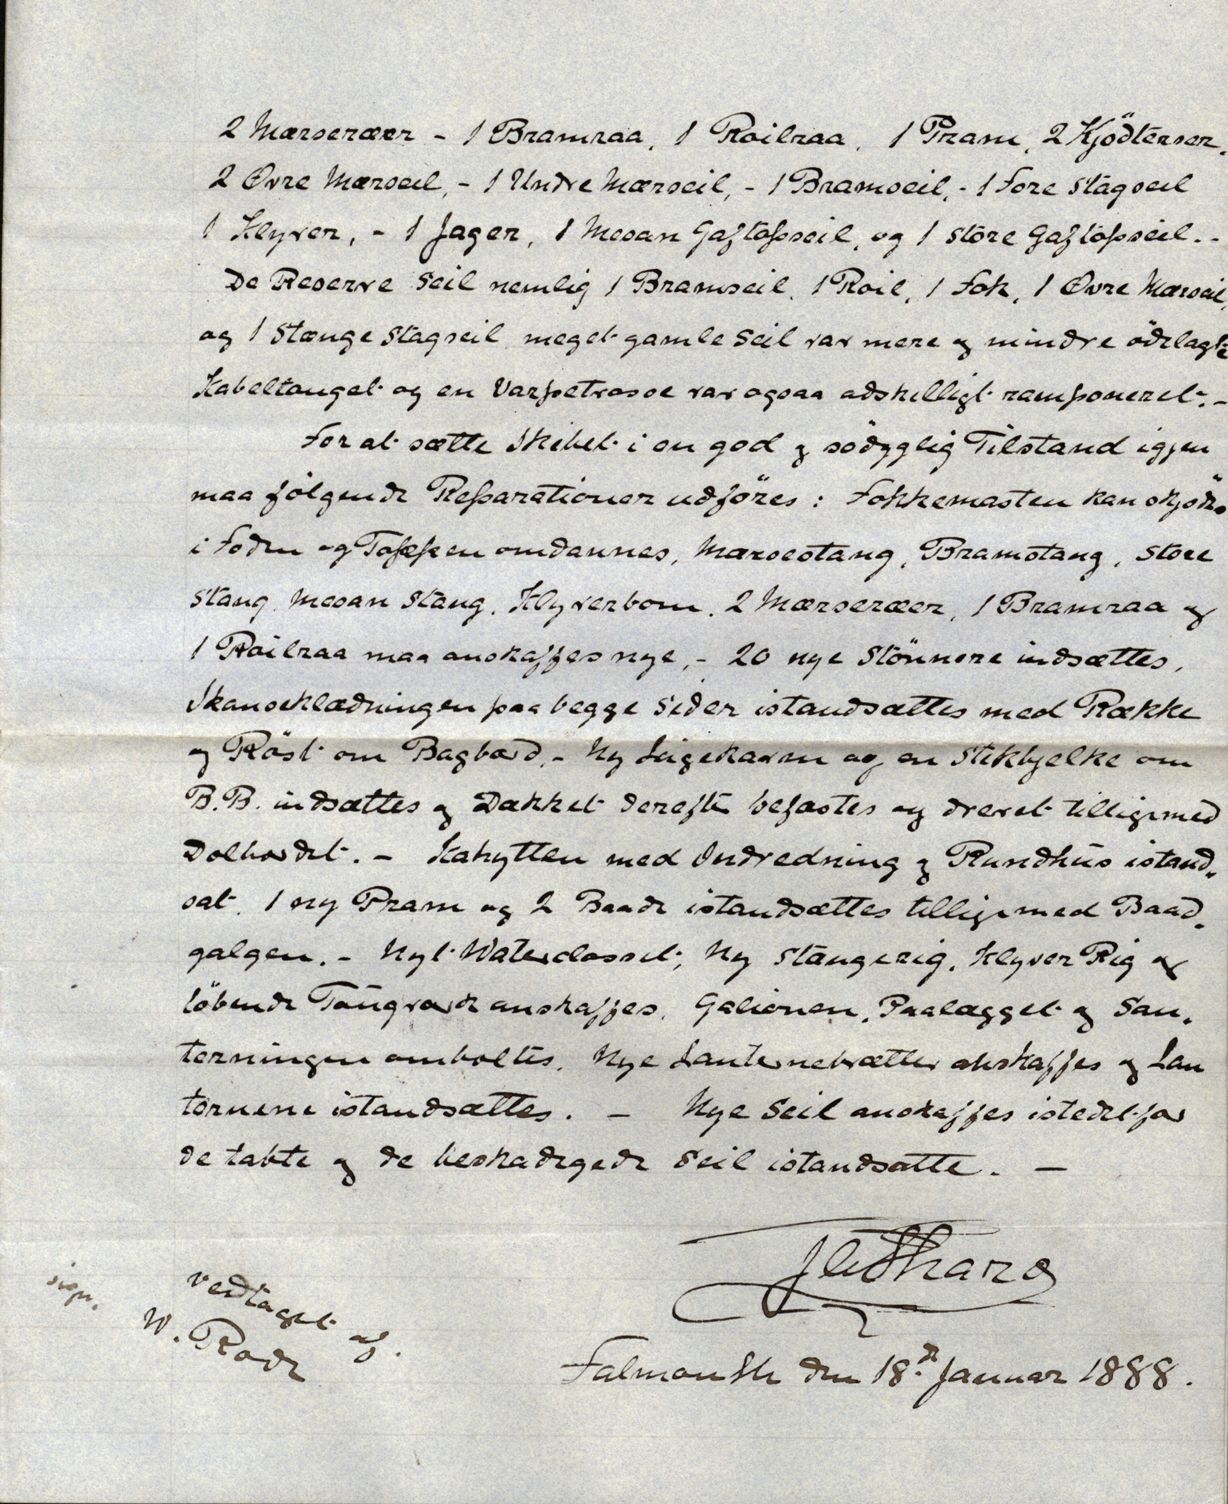 2 Mærseræer - 1 Bramraa, 1 Roilraa, 1 Pram, 2 Kjödtönser,
2 Övre Mærseil, - 1 Undre Mærseil, - 1 Bramseil, - 1 Fore Stagseil
1 Klyver, - 1 Jager, 1 Mesan Gaftopseil, og 1 Store Gaftopseil. -
De Reserve Seil nemlig 1 Bramseil, 1 Roil, 1 Fok, 1 Övre Mærseil,
og 1 Stænge Stagseil meget gamle Seil var mere og mindre ödelagte
Kabeltauget og en Varpetrosse var ogsaa adskilligt ramponeret. -
For at sætte Skibet i en god og södygtig Tilstand igjen
maa fölgende Reparationer udföres: Fokkemasten kan skjödes
i Foden og Toppen omdannes, Mærsestang, Bramstang, Store
Stang, Mesan Stang, Klyverbom, 2 Mærseræer, 1 Bramraa og
1 Roilraa maa anskaffes nye, - 20 nye Stönnere indsættes,
Skanseklædningen paa begge Sider istandsættes med Række
og Röst om Bagbord. - Ny Lugekarm og en Stikbjelke om
B.B. indsættes og Dækket derefter befæstes og drevet tilligemed
Dolbordet. - Kahytten med Indredning og Rundhus istand-
sat. 1 ny Pram og 2 Baade istandsættes tilligemed Baad-
galgen. - Nyt Watercloset, Ny Stangerig, Klyver Rig og
löbende Taugværk anskaffes. Galionen, Paalægget og San-
terningen omboltes. Nye Lanternebrætter anskaffes og Lan
ternene istandsættes. - Nye Seil anskaffes istedetfor
de tabte og de beskadigede Seil istandsatte. -
Falmouth den 18.d Januar 1888.
sign.
vedtaget af.
W. Rode